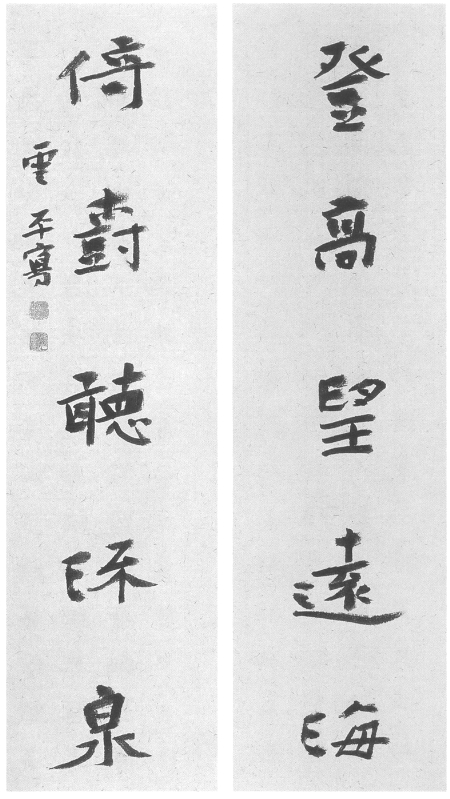 登高望遠海
倚樹聽流泉
雲平寫